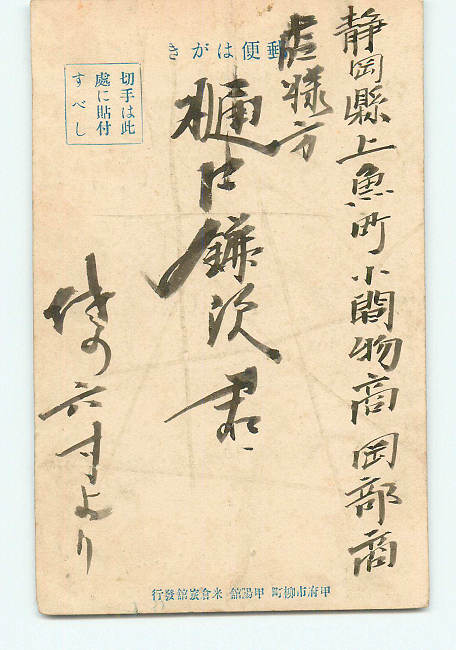 郵便はがき
切手は此
處に貼付
すべし
静岡縣上魚町小間物商岡部商
店様方
樋口鎌次君
六寸より
甲府市柳町 甲陽館 米倉支舘發行